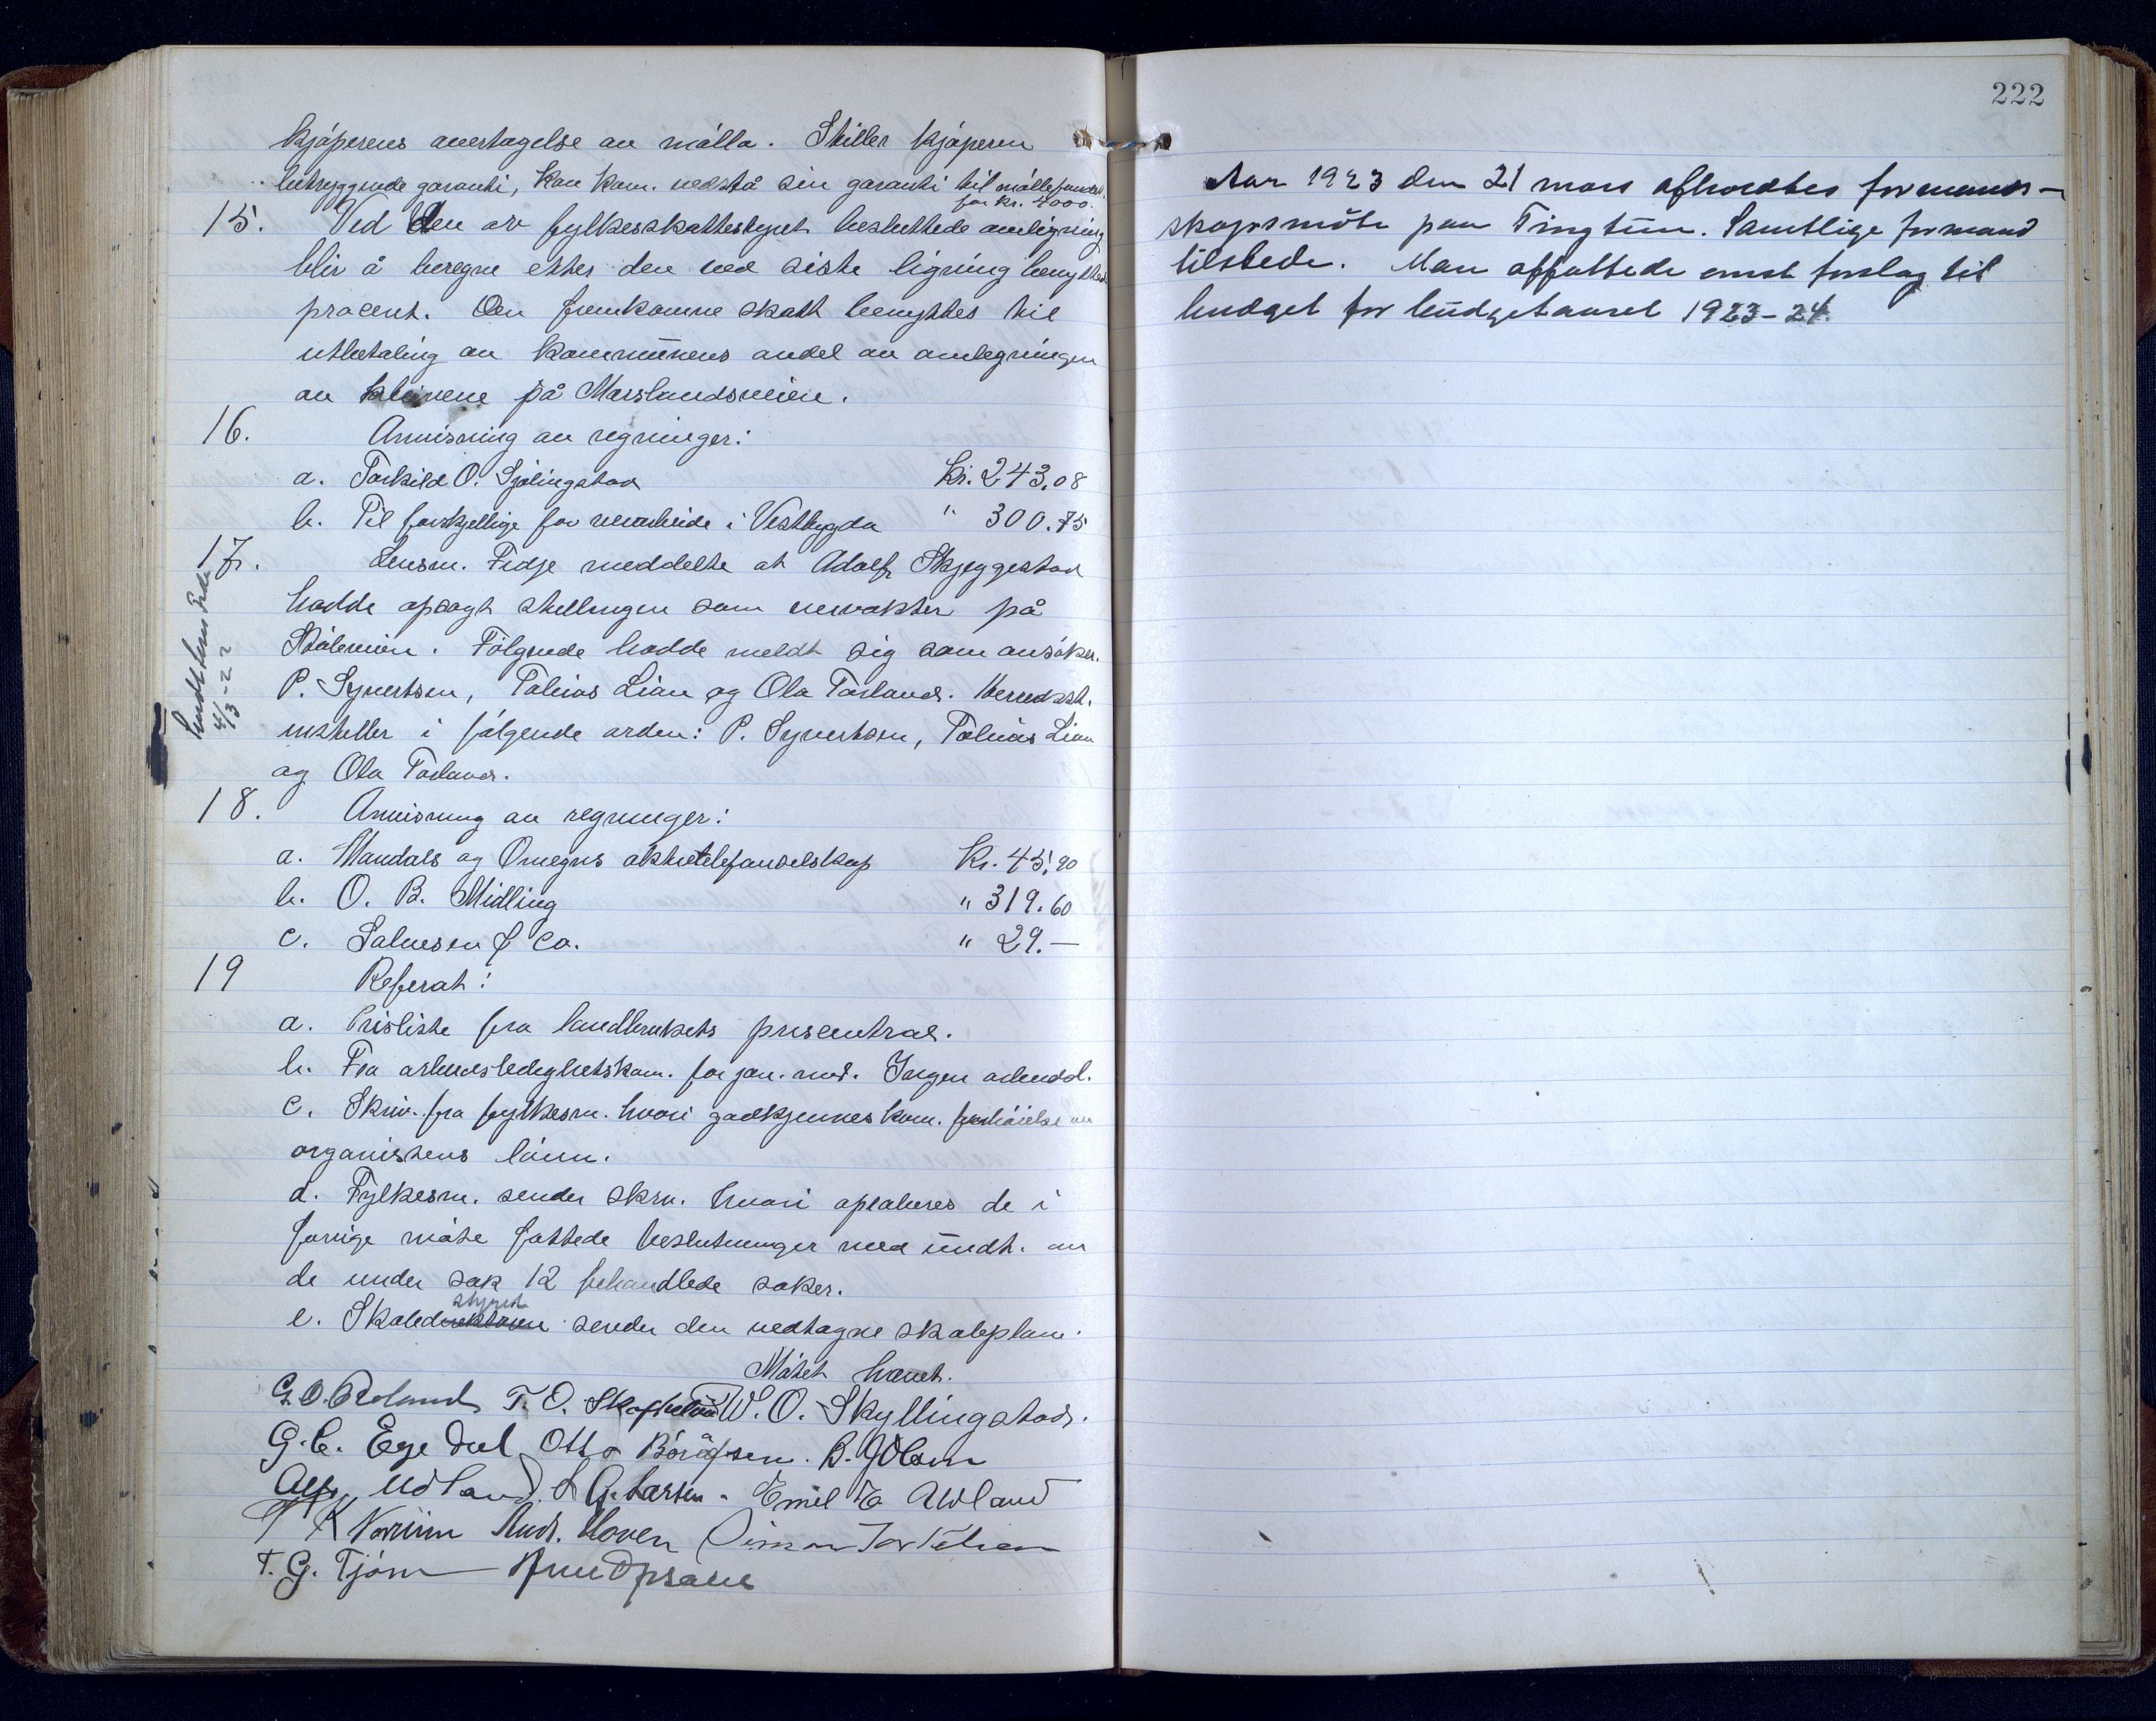 kjøperens overtagelse av mølla. Stiller kjøperen
betryggende garanti, kan kom. nedstå sin garanti til møllefondet
for kr. 4000.
15. Ved den av fylkesskattestyret besluttede omligning
blir å beregne efter den ved siste ligning benyttede
procent. Den fremkomne skatt benyttes til
utbetaling av kommunens andel av omlegningen
av kleivene på Marslandsveien.
16. Anvisning av regninger:
a. Torkild O. Sjølingstad kr. 243,08
b. Til forskjellige for veiarbeide i Vestbygda " 300.75
17. Lensm. Fidje meddelte at Adolf Skjeggestad
hadde opsagt stillingen som veivokter på
Ståleveien. Følgende hadde meldt sig som ansøker.
P. Syvertsen, Tobias Lian og Ola Tarland. Herredsst.
innstiller i følgende orden: P. Syvertsen, Tobias Lian
og Ola Tarland.
Sendt lensm. Fidje
4/3-22
18. Anvisning av regninger:
a. Mandals og Omegns aktietelefonselskap kr. 45,90
b. O. B. Midling " 319.60
c. Salvesen & Co. " 29.—
19 Referat:
a. Prisliste fra landbrukets priscentral.
b. Fra arbeidsledighetskom. for jan. mnd. Ingen arbeidsl.
c. Skriv. fra fylkesm. hvori godkjennes kom. forhøielse av
organistens lønn.
d. Fylkesm. sender skriv. hvori approberes de i
forrige møte fattede beslutninger med undt. av
de under sak 12 behandlede saker.
styret
e. Skoledirektøren sender den vedtagne skoleplan.
Møtet hævet.
G. O. Roland T. O. W. O. Skyllingstad.
G. C. Egedal Otto Bentsen. B. J. Olsen
Alf. Udland. S. G. Larsen. Emil E Udland
K Norum Andr. Hoven Simon Torkelsen
T. G. Tjøm
222
Aar 1923 den 21 mars afholdtes formand-
skapsmöte paa Tingtun. Samtlige formænd
tilstede. Man affattede omst forslag til
budget for budgetaaret 1923-24.